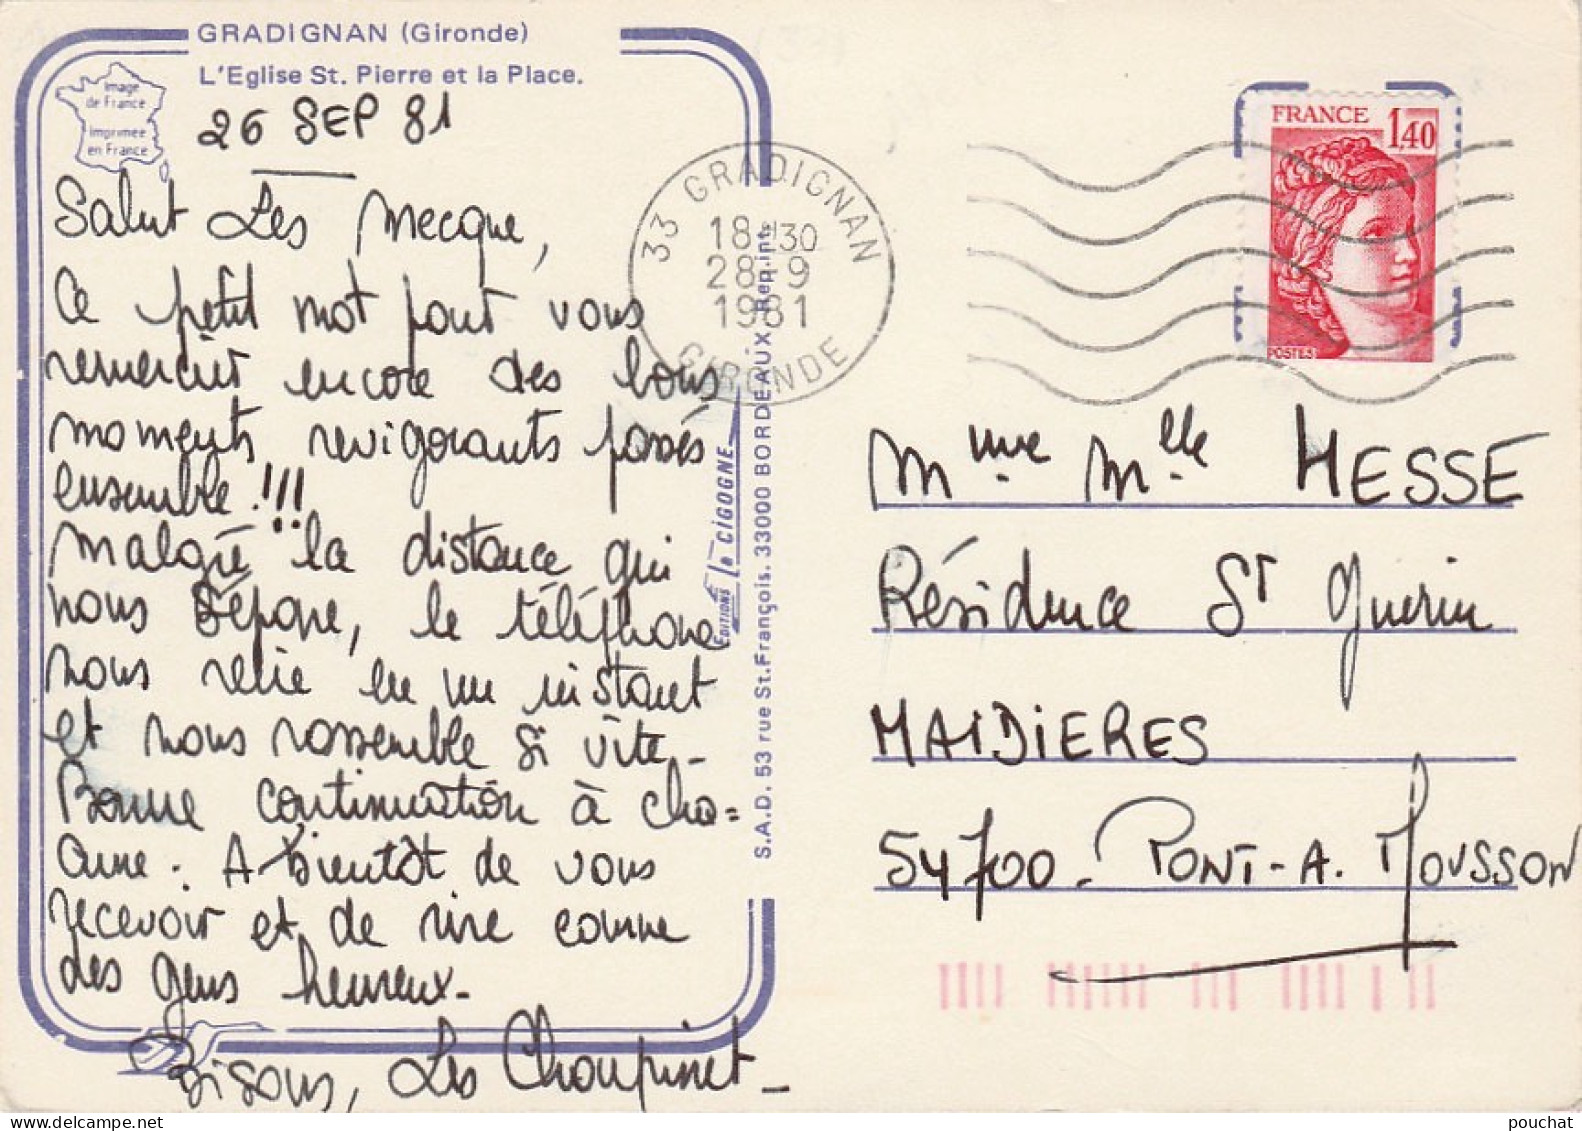 GRADIGNAN (Gironde)
L'Eglise St. Pierre et la Place.
Image
de France
Imprimée
en France
26 SEP 81
Salut Les Mecque,
Ce petit mot pour vous
remercier encore des bons
moments revigorants passés
ensemble!!!
Malgré la distance qui
nous sépare, le téléphone
nous relie en un instant
et nous rassemble si vite_
Bonne continuation à cha=
cune. A bientôt de vous
recevoir et de rire comme
des gens heureux_
Bisous, Les Choupinet_
EDITIONS la CIGOGNE
S.A.D. 53 rue St.François. 33000 BORDEAUX Rep.int.
33 GRADIGNAN
18H30
28-9
1981
GIRONDE
FRANCE 1,40
POSTES
Mme Melle HESSE
Résidence St Guerin
MAIDIERES
54700_ PONT-A. MOUSSON
www.delcampe.net
pouchat